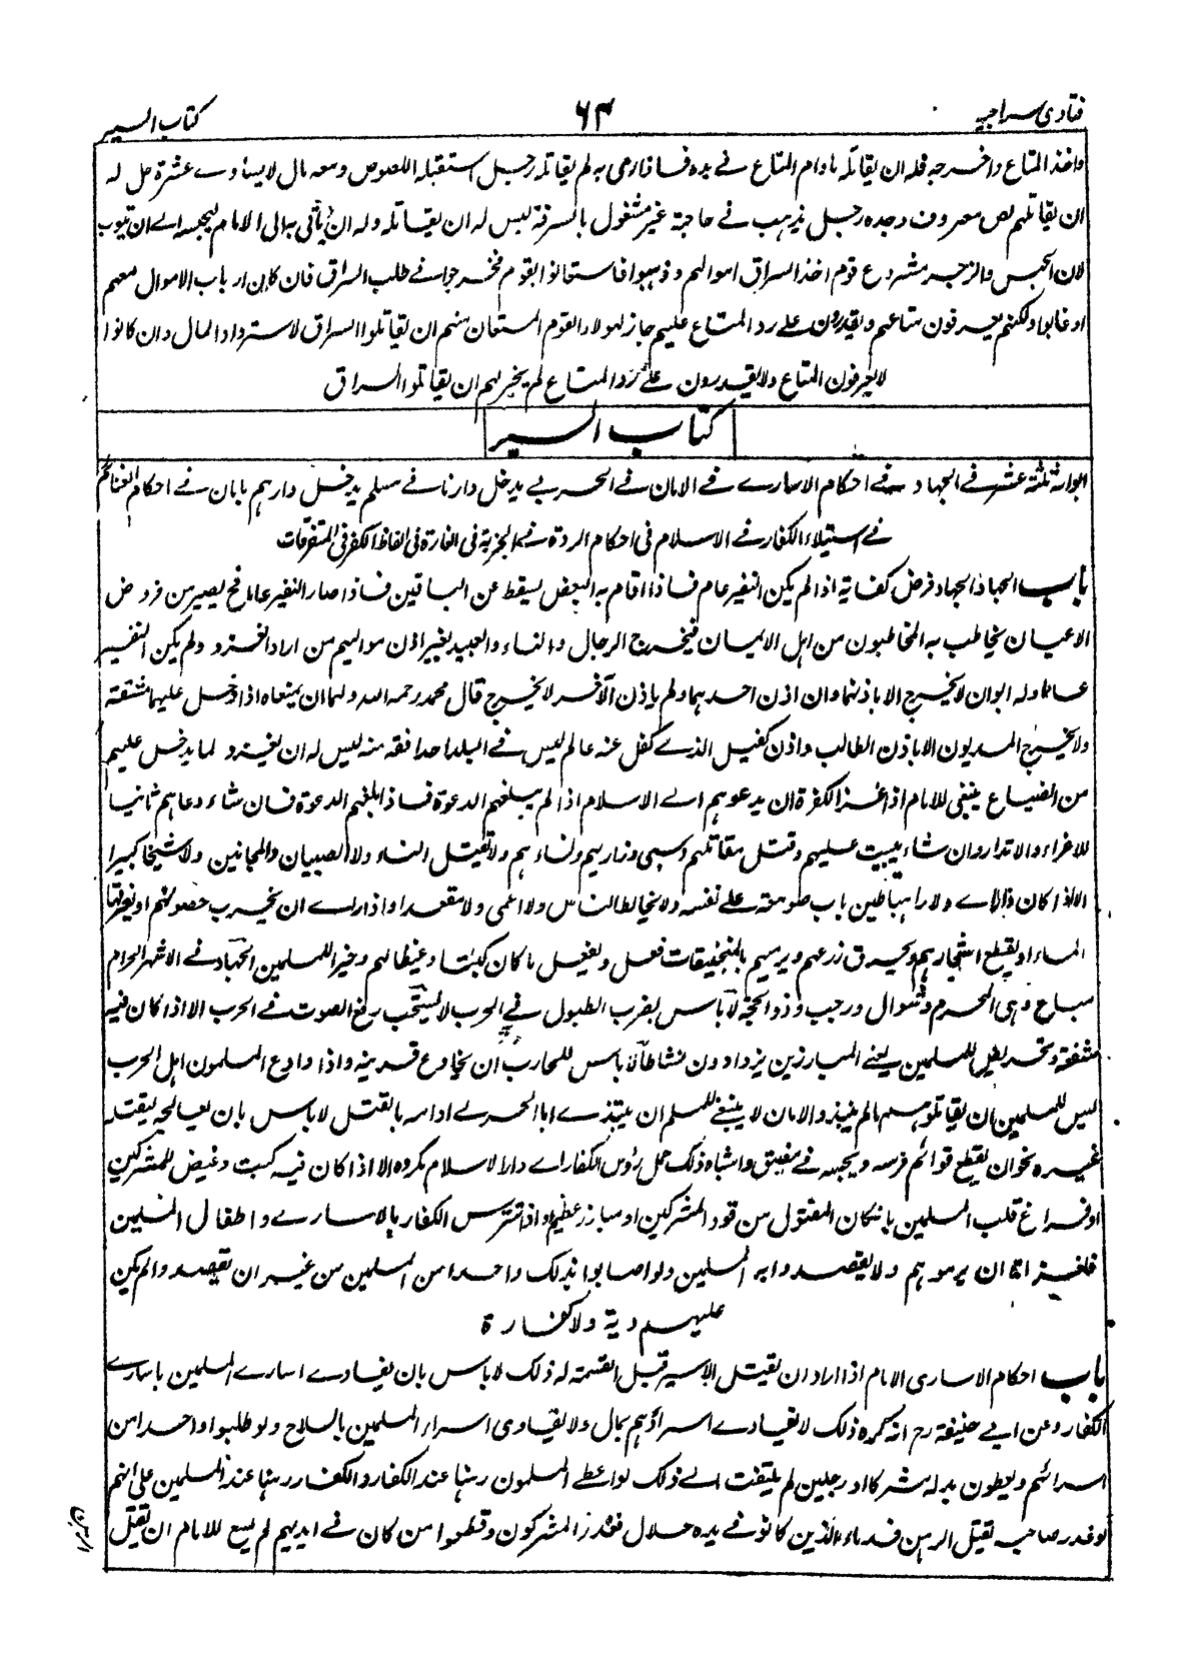 فتاوی سراجیہ ٦٣ کتاب السیر
واخذ المتاع واخرجہ فلہ ان یقاتلہ مادام المتاع فے یدہ فاذا رمی بہ لم یقاتلہ رجل استقبلہ اللصوص ومعہ مال لایساوے عشرة حل لہ
ان یقاتلہم لص معروف وجدہ رجل یذہب فے حاجة غیر مشغول بالسرقة لیس لہ ان یقاتلہ ولہ ان یأتی بہ الی الامام لیحبسہ الے ان یتوب
لان الحبس والزجر مشروع قوم اخذ السراق اموالہم وذہبوا فاستعانوا بقوم فخرجوا فے طلب السراق فان کان ارباب الاموال معہم
اوغابوا ولکنہم یعرفون متاعہم ویقدرون علے رد المتاع علیہم جاز لہولاء القوم المستعان بہم ان یقاتلوا السراق لاسترداد المال وان کانوا
لایعرفون المتاع ولایقدرون علے رد المتاع لم یجز لہم ان یقاتلوا السراق
کتاب السیر
ابوابہ ثلثة عشر فے الجہاد فے احکام الاسارے فے الامان فے الحربے یدخل دارنا فے مسلم یدخل دارہم بابان فے احکام الغنائم
فے استیلاء الکفار فے الاسلام فی احکام الردة فے الجزیة فی الغارة فی الفاظ الکفر فی المتفرقات
باب الجہاد الجہاد فرض کفایة اذا لم یکن النفیر عام فاذا اقام بہ البعض یسقط عن الباقین فاذا صار النفیر عاما فح یصیر من فروض
الاعیان یخاطب بہ المخاطبون من اہل الایمان فیخرج الرجال والنساء والعبید بغیر اذن موالیہم من اراد الغزو ولم یکن النفیر
عاما ولہ ابوان لایخرج الا باذنہما وان اذن احدہما ولم یاذن الآخر لایخرج قال محمد رحمہ اللہ ولہما ان یمنعاہ اذا دخل علیہما مشقة
ولایخرج المدیون الا باذن الطالب واذن کفیل الذے کفل عنہ عالم لیس فے البلد احد افقہ منہ لیس لہ ان یغزو لما یدخل علیہم
من الضیاع ینبغی للامام اذا غزا الکفرة ان یدعوہم الے الاسلام اذا لم یبلغہم الدعوة فاذا بلغہم الدعوة فان شاء دعاہم ثانیا
للاغراء والانذار وان شاء یبیت علیہم وقتل مقاتلہم وسبی وزاریہم ونساءہم ولایقتل النساء ولا الصبیان والمجانین ولا شیخا کبیرا
الا اذا کان ذا راے ولا راہبا طین باب صومعتہ علے نفسہ ولایخالط الناس ولا اعمی ولا مقعدا واذا راے ان یخرب حصونہم او یغرقہا
الماء او یقطع اشجارہم ویحرق زرعہم ویرمیہم بالمنجنیقات فعل ویفعل ما کان کبتا وغیظا لہم وخیرا للمسلمین الجہاد فے الاشہر الحرام
مباح وہی المحرم وشوال ورجب وذو الحجة لاباس بضرب الطبول فے الحرب لایستحب رفع الصوت فے الحرب الا اذا کان فیہ
مشفة وتحریض للمسلمین یعنے المبارزین یزدادون نشاطا لاباس للمحارب ان یخادع قرینہ واذا وادع المسلمون اہل الحرب
لیس للمسلمین ان یقاتلوہم مالم ینبذوا الامان لا ینبغے للمسلم ان یبتدے ابا الحربے او امہ بالقتل لاباس بان یعالجہ لیقتلہ
غیرہ نحو ان یقطع قوائم فرسہ ویحبسہ فے مضیق واشباہ ذلک حمل رؤس الکفار الے دار الاسلام مکروہ الا اذا کان فیہ کبت وغیض للمشرکین
او فراغ قلب المسلمین بان کان المقتول من قود المشرکین او مبارز عظیم واذا تترس الکفار بالاسارے واطفال المسلمین
فلغزاتنا ان یرموہم ولایقصدوا بہ المسلمین ولو اصابوا بذلک واحدا من المسلمین من غیر ان یقصد والم یکن
علیہم دیة ولا کفارة
باب احکام الاساری الامام اذا اراد ان یقتل الاسیر قبل القسمة لہ ذلک لاباس بان یفادے اسارے المسلمین باسارے
الکفار وعن ابے حنیفة رح انہ کرہ ذلک لایفادے اسراؤہم بمال ولایفادی اسراء المسلمین بالسلاح ولو طلبوا واحدا من
اسرائہم ویعطون بدلہ مشرکا او رجلین لم یلتفت الے ذلک لو اعطے المسلمون رہنا عند الکفار والکفار رہنا عند المسلمین علی انہم
لو غدر صاحبہ یقتل الرہن فدماء الذین کانوا فے یدہ حلال فغدر المشرکون وقتلوا من کان فے ایدیہم لم یسع للامام ان یقتل